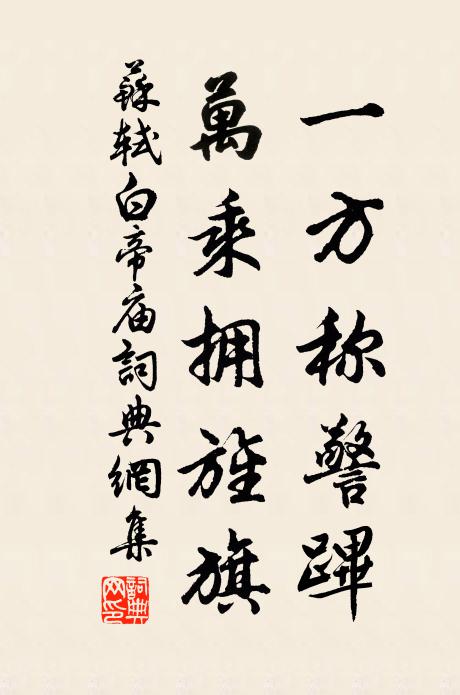 一方称警蹕
萬乘拥旌旗
蘇軾白帝庙詞典網集
詞典网印